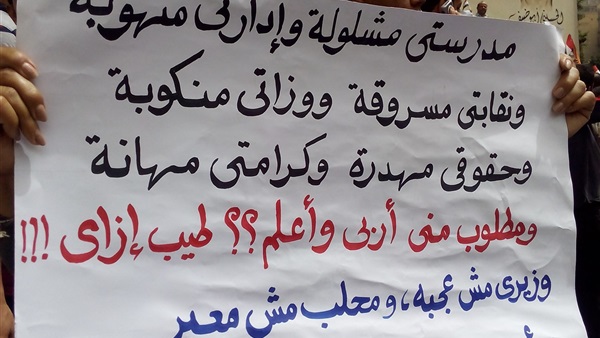 مدرستى مشلولة وإدارتى منهوبة
ونقابتى مسروقة ووزاتى منكوبة
وحقوقى مهدرة وكرامتى مهانة
ومطلوب منى أربى وأعلم؟؟ طيب إزاى !!!
وزيرى مش عجبه، ومحلب مش معبر